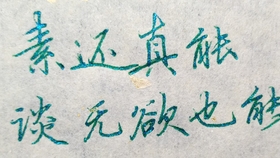 素还真能
谈无欲也能